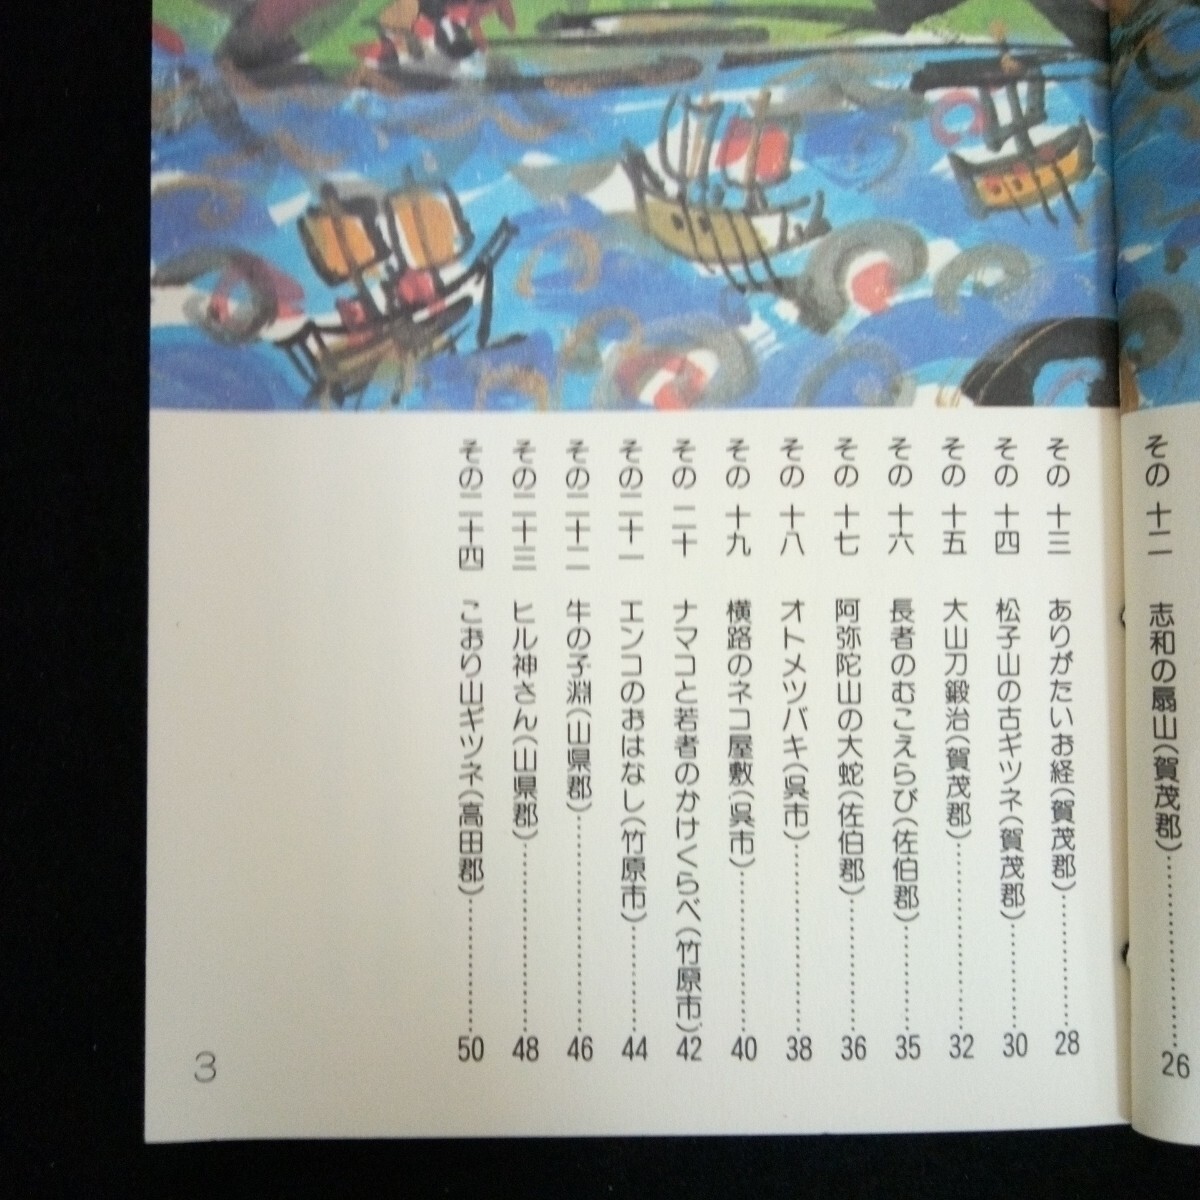 その 十二 志和の扇山(賀茂郡)…………26
その 十三 ありがたいお経(賀茂郡)…………28
その 十四 松子山の古ギツネ(賀茂郡)…………30
その 十五 大山刀鍛冶(賀茂郡)…………32
その 十六 長者のむこえらび(佐伯郡)…………35
その 十七 阿弥陀山の大蛇(佐伯郡)…………36
その 十八 オトメツバキ(呉市)…………38
その 十九 横路のネコ屋敷(呉市)…………40
その 二十 ナマコと若者のかけくらべ(竹原市)…42
その二十一 エンコのおはなし(竹原市)…………44
その二十二 牛の子淵(山県郡)…………46
その二十三 ヒル神さん(山県郡)…………48
その二十四 こおり山ギツネ(高田郡)…………50
3